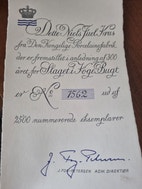 Dette Niels Juel Krus
fra Den Kongelige Porcelainsfabrik,
der er fremstillet i anledning af 300
året for Slaget i Køge Bugt
er No 1562 ud af
2500 nummererede eksemplarer
ADM. DIREKTØR